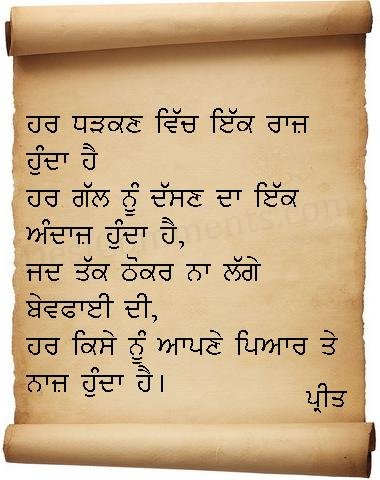 ਹਰ ਧੜਕਣ ਵਿੱਚ ਇੱਕ ਰਾਜ਼
ਹੁੰਦਾ ਹੈ
ਹਰ ਗੱਲ ਨੂੰ ਦੱਸਣ ਦਾ ਇੱਕ
ਅੰਦਾਜ਼ ਹੁੰਦਾ ਹੈ,
ਜਦ ਤੱਕ ਠੋਕਰ ਨਾ ਲੱਗੇ
ਬੇਵਫਾਈ ਦੀ,
ਹਰ ਕਿਸੇ ਨੂੰ ਆਪਣੇ ਪਿਆਰ ਤੇ
ਨਾਜ਼ ਹੁੰਦਾ ਹੈ।
ਪ੍ਰੀਤ